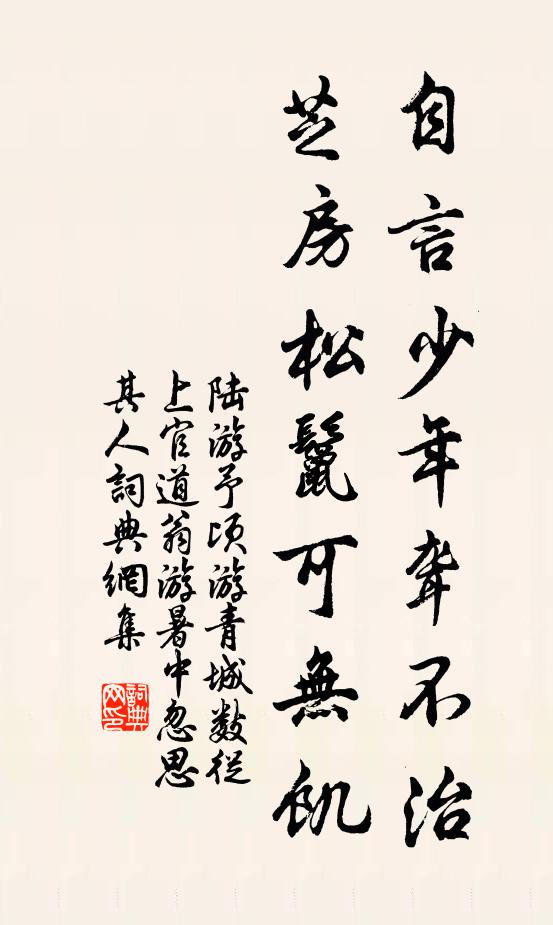 自言少年聾不治
芝房松鬣可無飢
陸游予頃游青城數從
上官道翁游暑中忽思
其人詞典網集
詞典
网印